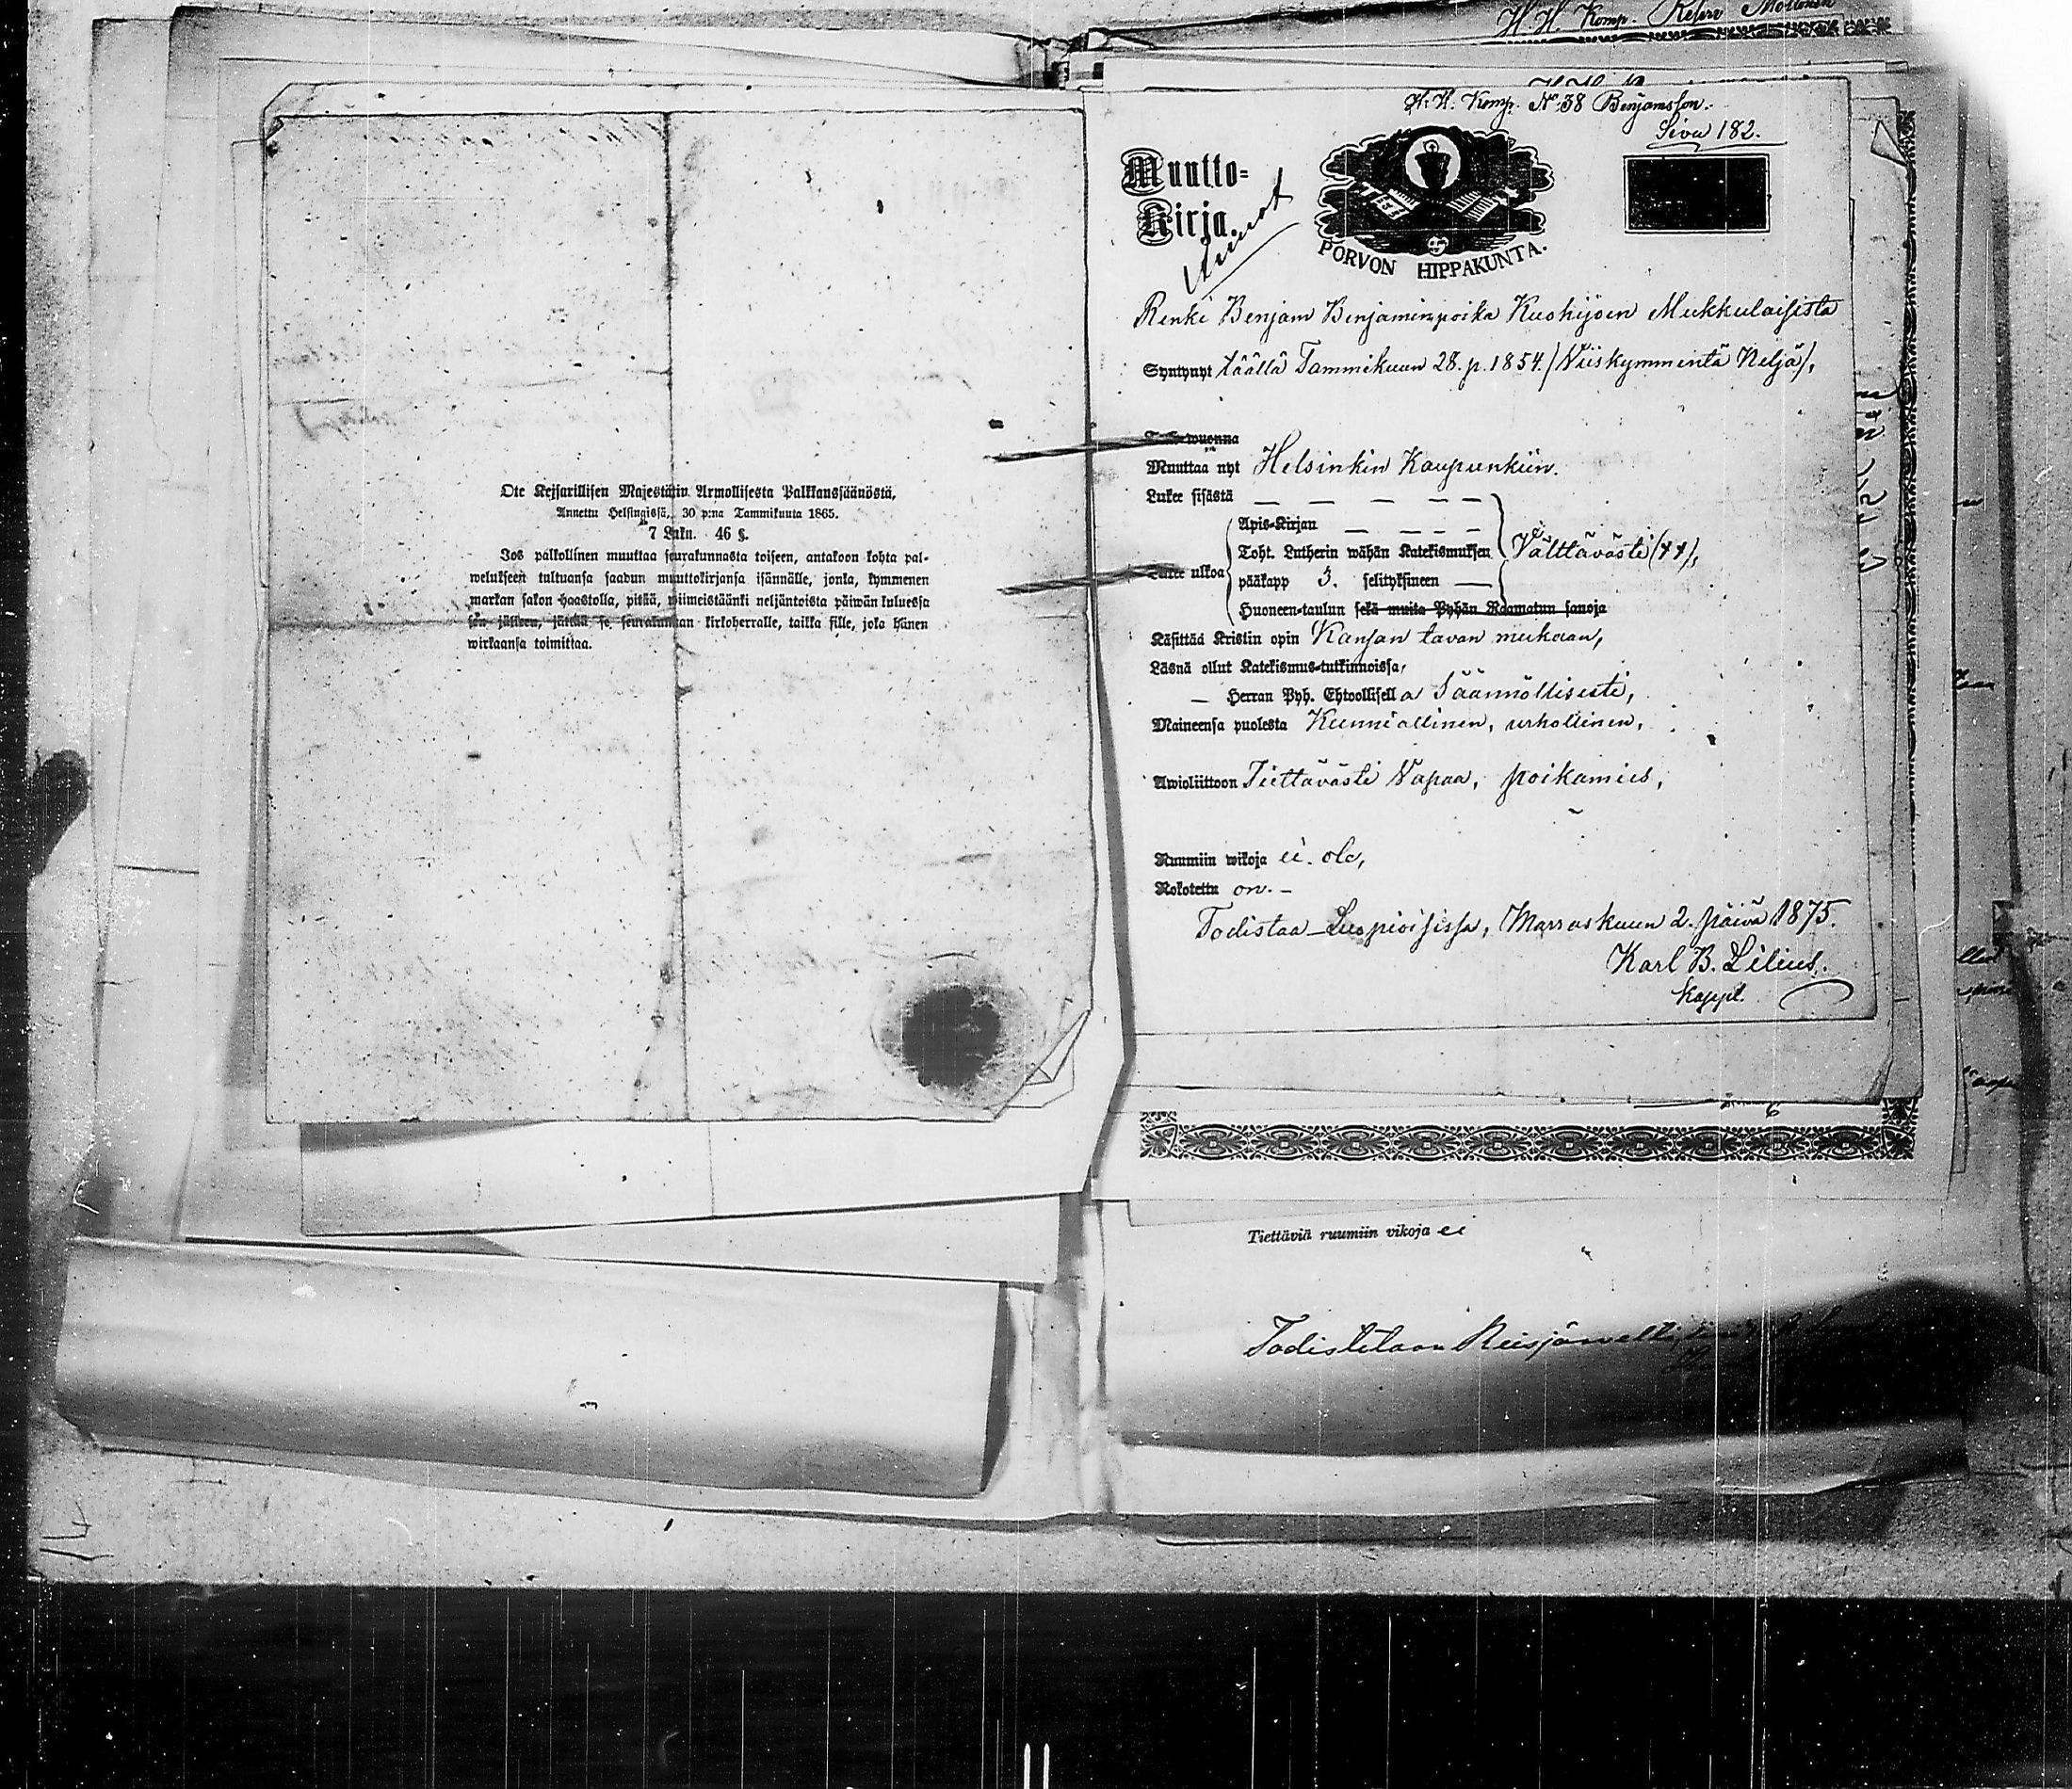 H. H. Komp. Reserv
Ote Keisarillisen Majesteetin Armollisesta Palkkaussäänöstä,
Annettu Helsingissä, 30 p:na Tammikuuta 1865.
7 Luku. 46 §.
Jos palkollinen muuttaa seurakunnasta toiseen, antakoon kohta pal-
welukseen tultuansa saadun muuttokirjansa isännälle, jonka, kymmenen
markan sakon haastolla, pitää, wiimeistäänki neljäntoista päiwän kuluessa
sen jälkeen, jättää se seurakunnan kirkoherralle, taikka sille, joka hänen
wirkaansa toimittaa.
H. H. Komp. No 38 Benjamsson.
Sivu 182.
Muutto-
Kirja.
PORVON HIPPAKUNTA.
Renki Benjam Benjaminpoika Kuohijoen Mukkulaisista
Syntynyt täällä Tammikuun 28. p. 1854. (Viiskymmentä Neljä),
wuonna
Muuttaa nyt Helsinkin Kaupunkiin.
Lukee sisästä — — — — —
Apis-Kirjan — — — —
Toht. Lutherin wähän Katekismuksen Välttävästi (++),
Lukee ulkoa
pääkapp 3. selityksineen —
Huoneen-taulun sekä muita Pyhän Raamatun sanoja
Käsittää Kristin opin Kansan tavan mukaan,
Läsnä ollut Katekismus-tutkinnoissa,
— Herran Pyh. Ehtoollisella Säännöllisesti,
Maineensa puolesta Kunniallinen, urhollinen,
Awioliittoon Tiettävästi Vapaa, poikamies,
Ruumiin wikoja ei ole,
Rokotettu on. —
Todistaa Luopioisissa, Marraskuun 2. päivä 1875.
Karl B. Lilius.
Kappl.
6
Tiettäviä ruumiin vikoja ei
Todistetaan Reisjärvellä